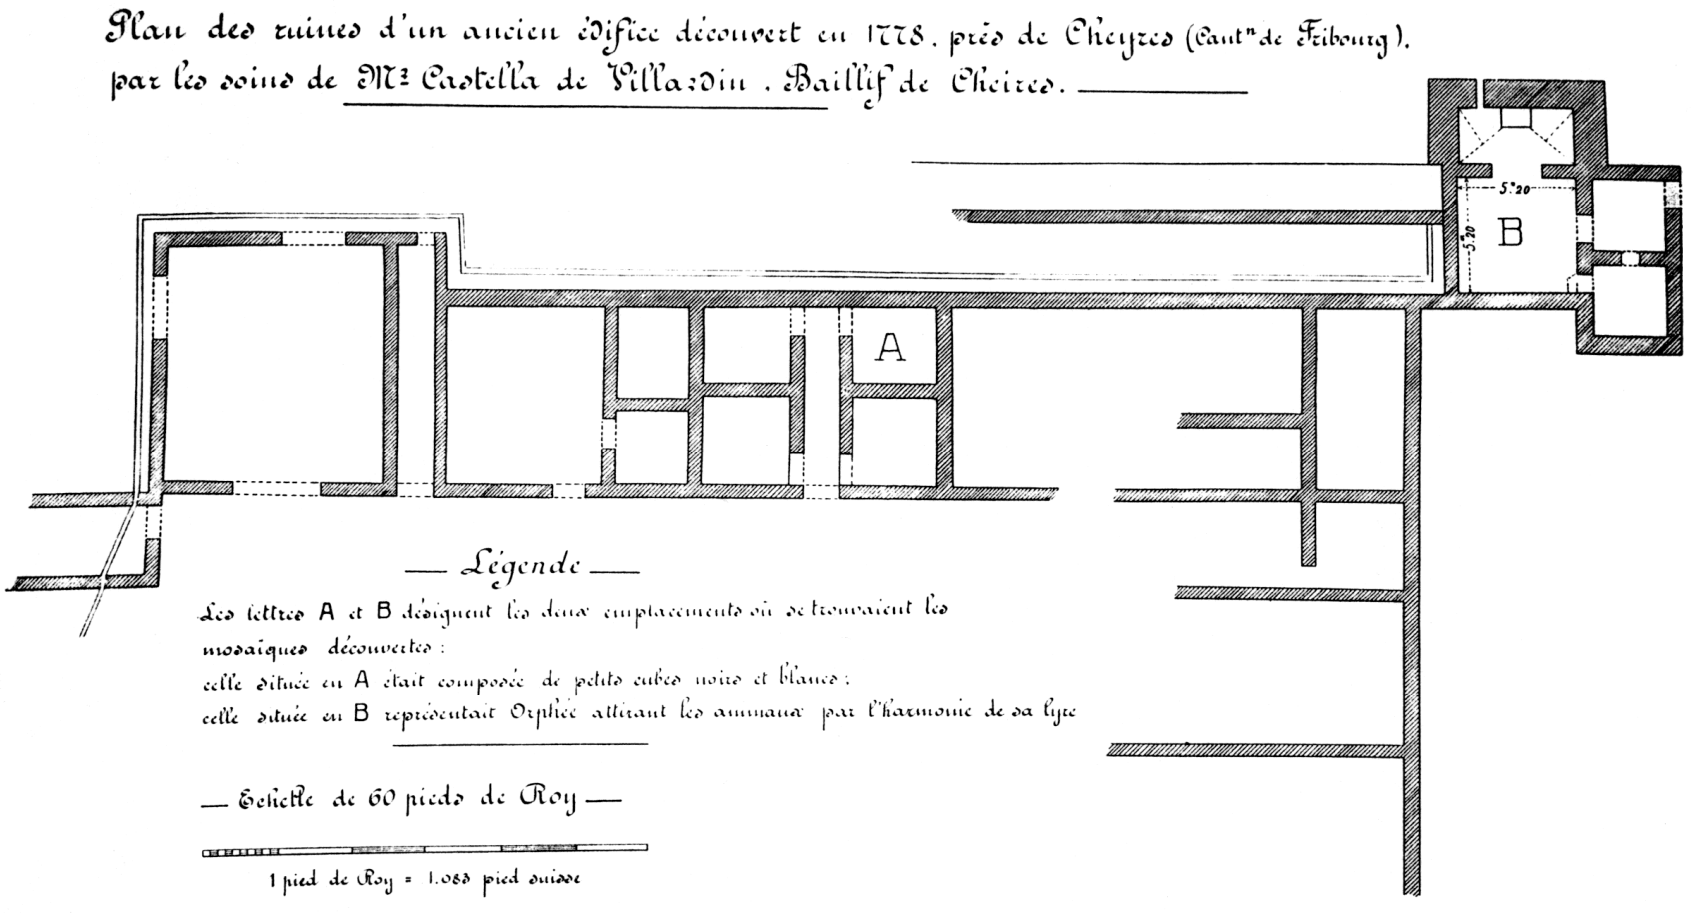 Plan des ruines d'un ancien édifice découvert en 1778. près de Cheyres (Cantⁿ de Fribourg).
par les soins de Mr Castella de Villardin. Baillif de Cheires.
5.m20
5.m20
B
A
Légende
Les lettres A et B désignent les deux emplacements où se trouvaient les
mosaïques découvertes:
celle située en A était composée de petits cubes noirs et blancs;
celle située en B représentait Orphée attirant les animaux par l'harmonie de sa lyre
Echelle de 60 pieds de Roy
1 pied de Roy = 1.083 pied suisse